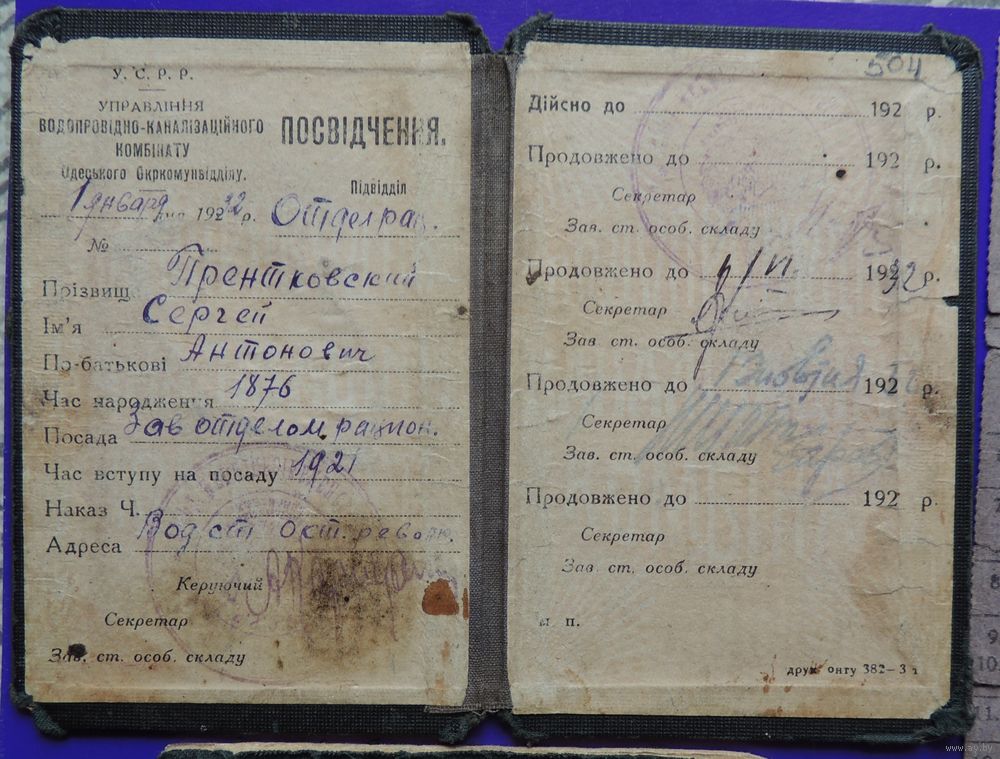 У. С. Р. Р.
УПРАВЛІННЯ
ВОДОПРОВІДНО-КАНАЛІЗАЦІЙНОГО
КОМБІНАТУ
Одеського Окркомунвідділу.
1 января 1932 р.
№
ПОСВІДЧЕННЯ.
Підвідділ
Отдел рац.
Прізвище Прентковский
Ім'я Сергей
По-батькові Антонович
Час народження 1876
Посада Зав отделом рацион.
Час вступу на посаду 1921
Наказ Ч.
Адреса Вод ст Окт. револю.
Керуючий
Секретар
Зав. ст. особ. складу
504
Дійсно до 192 р.
Продовжено до 192 р.
Секретар
Зав. ст. особ. складу
Продовжено до 1/VI. 1932 р.
Секретар
Зав. ст. особ. складу
Продовжено до 192 р.
Секретар
Зав. ст. особ. складу
Продовжено до 192 р.
Секретар
Зав. ст. особ. складу
м. п.
друк онту 382—3 т
8
9
10
11
www.ay.by